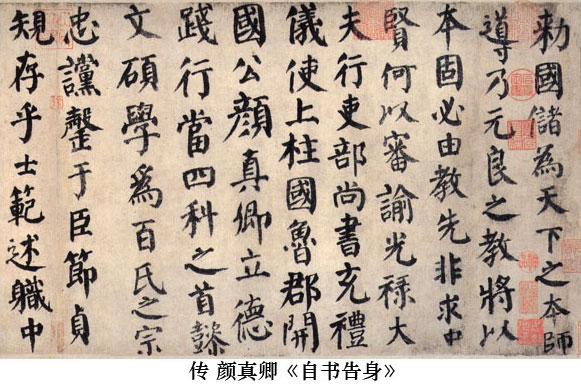 勅國儲為天下之本師
導乃元良之教將以
本固必由教先非求中
賢何以審諭光祿大
夫行吏部尚書充禮
儀使上柱國魯郡開
國公顔真卿立德
踐行當四科之首懿
文碩學爲百氏之宗
忠讜罄于臣節貞
規存乎士範述職中
传 颜真卿《自书告身》